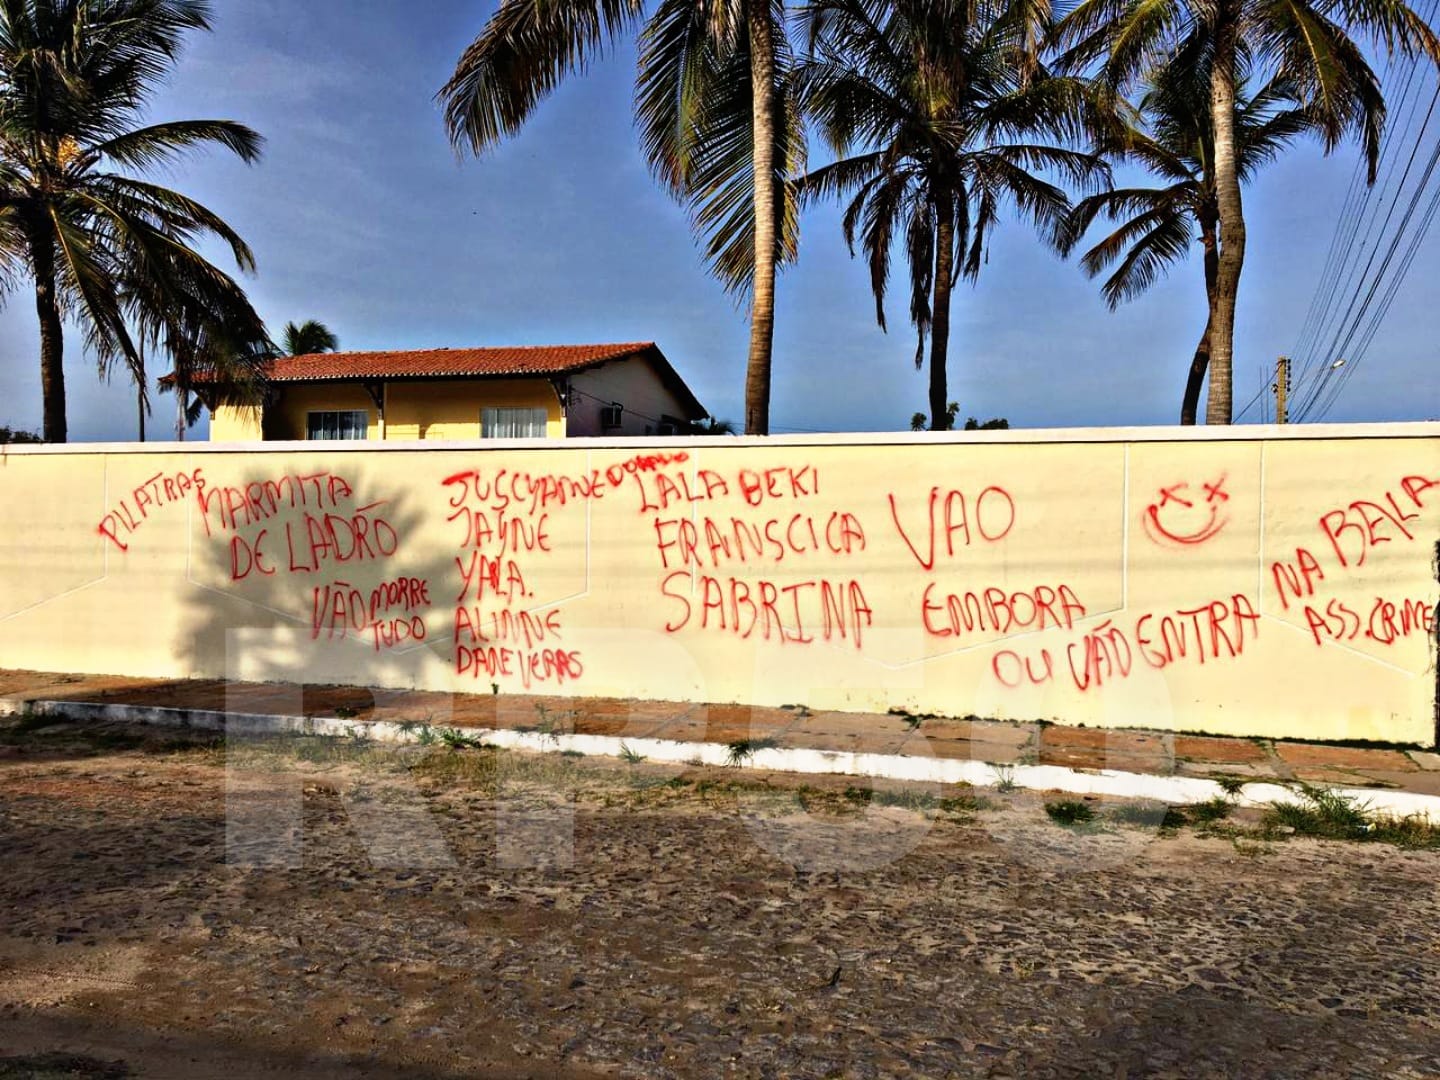 PILATRAS
MARMITA
DE LADRÃO
VÃO MORRE
TUDO
JUSCYANNE DORADO
JAYNE
YARA.
ALINNE
DANEVERAS
LALA BEKI
FRANSCICA
SABRINA
VAO
EMBORA
OU VÃO ENTRA
NA BALA
ASS. CRIME
RP50